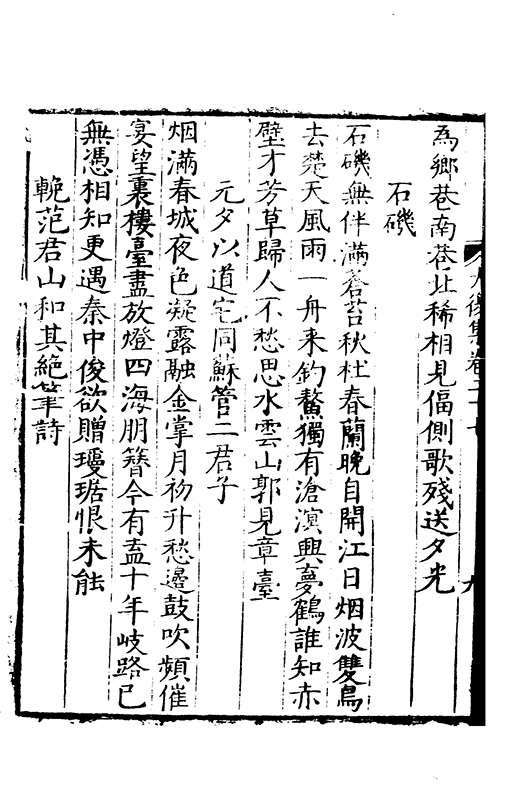 為鄉巷南巷北稀相見偪側歌殘送夕光
石磯
石磯無伴滿蒼苔秋杜春蘭晚自開江日烟波雙鳥
去楚天風雨一舟来釣鰲獨有滄溟興夢鶴誰知赤
壁才芳草歸人不愁思水雲山郭見章臺
元夕以道宅同蘇管二君子
烟滿春城夜色凝露融金掌月初升愁邊鼓吹頻催
宴望裏樓臺盡放燈四海朋簪今有盍十年岐路已
無憑相知更遇秦中俊欲贈瓊琚恨未能
輓范君山和其絕筆詩